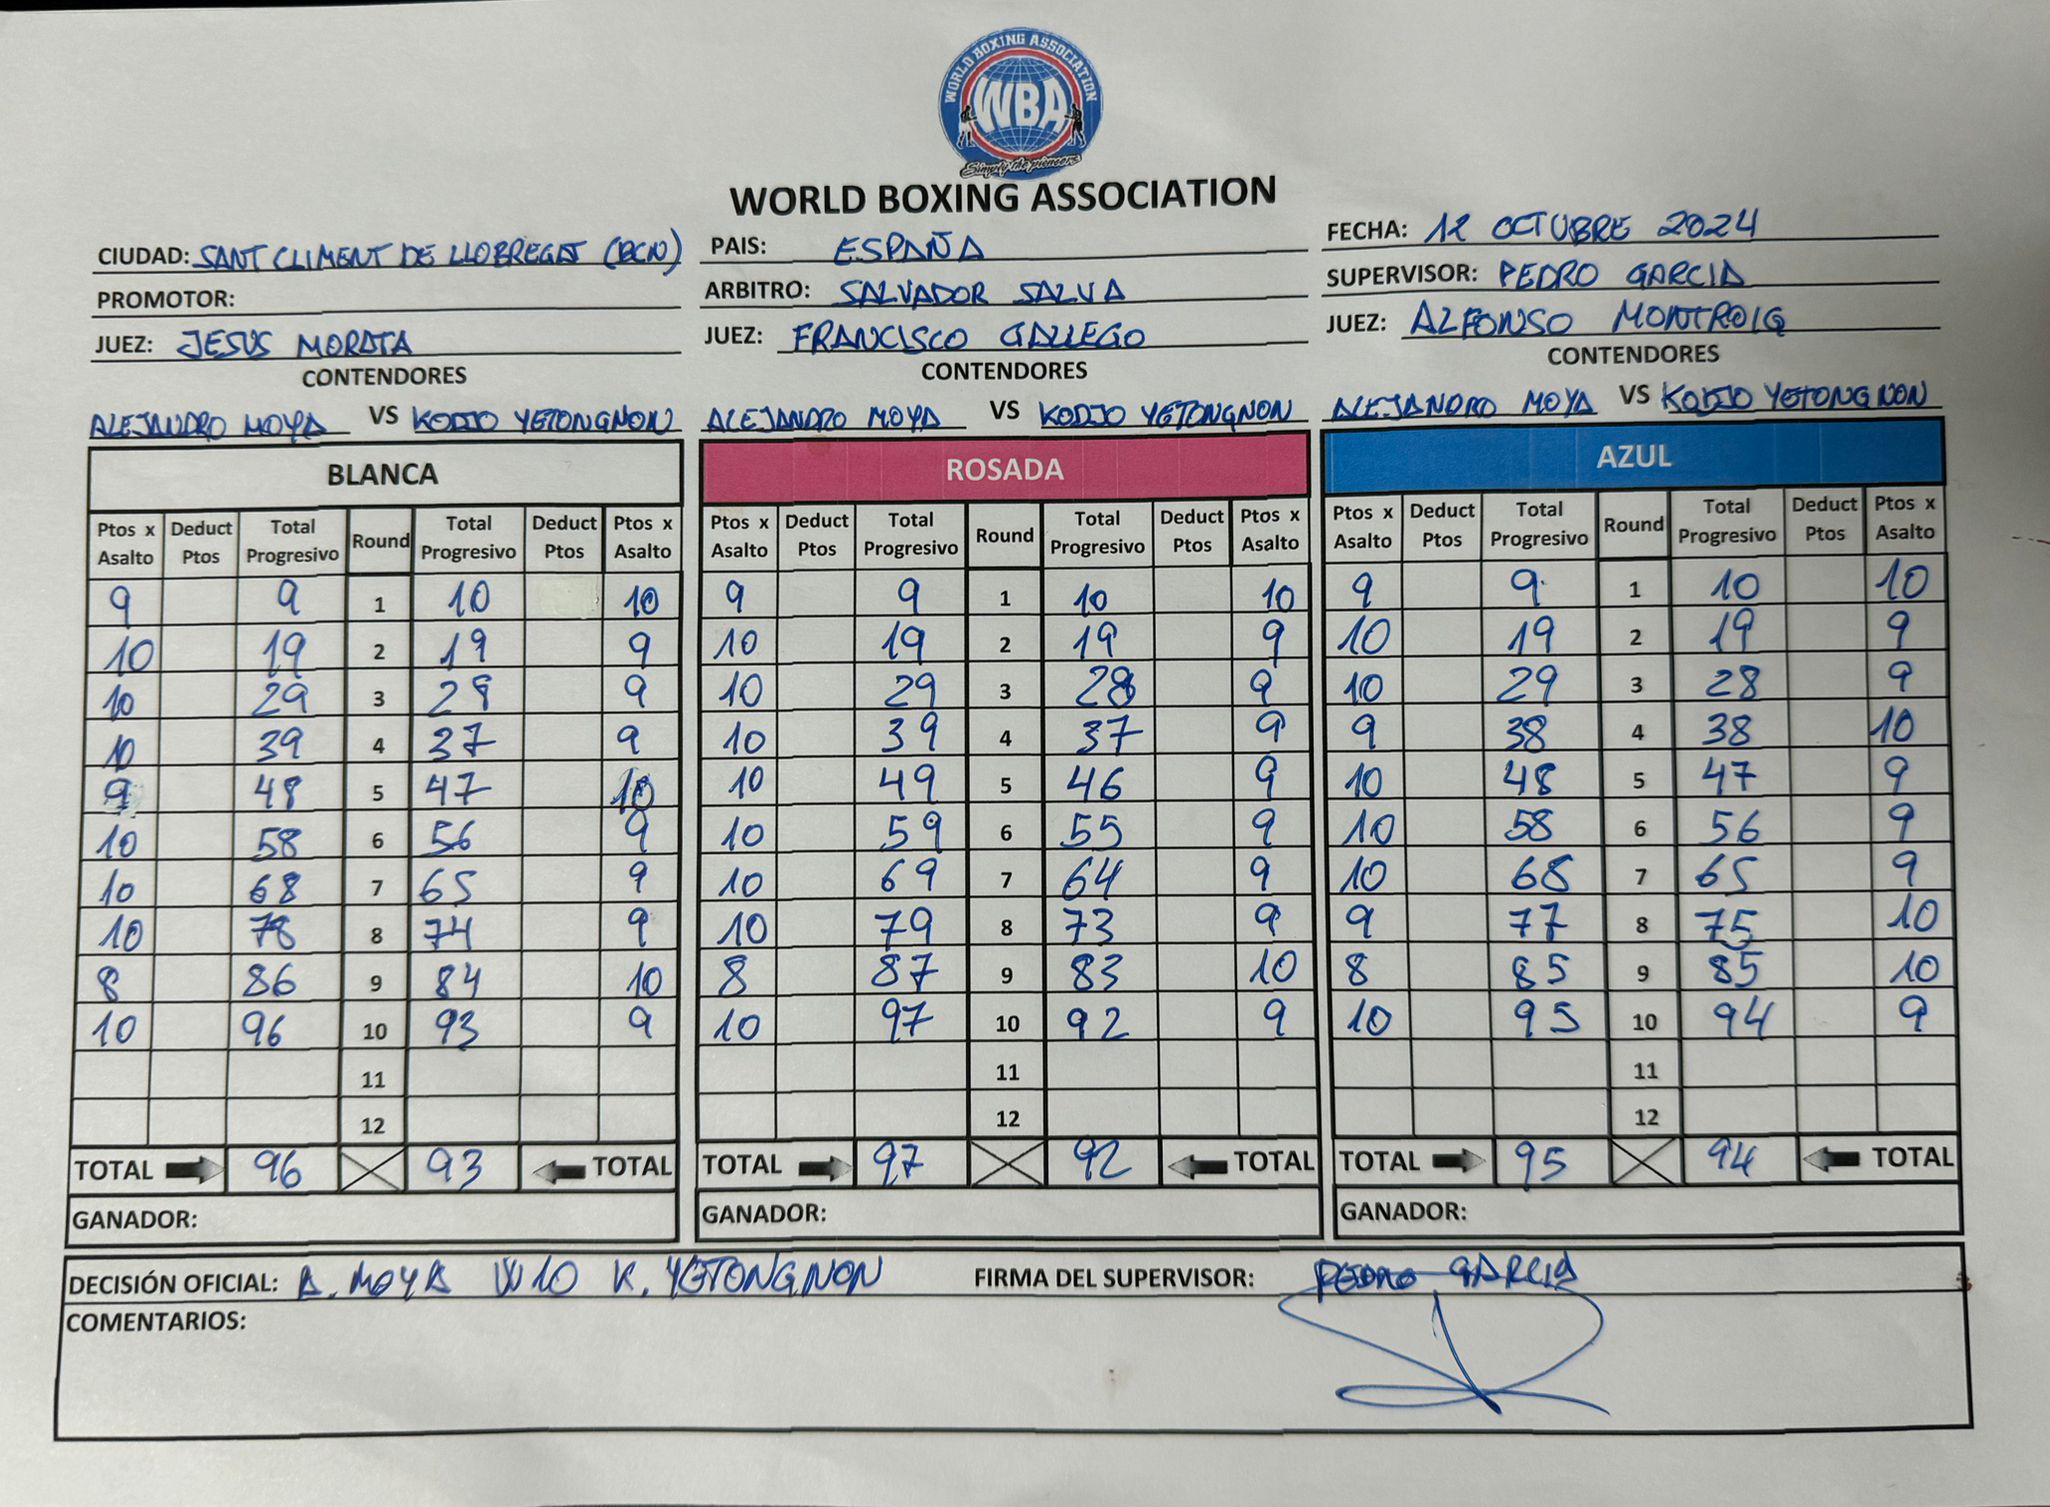 WORLD BOXING ASSOCIATION
WBA
Simply the pioneers
WORLD BOXING ASSOCIATION
CIUDAD: SANT CLIMENT DE LLOBREGAT (BCN) PAIS: ESPAÑA FECHA: 12 OCTUBRE 2024
PROMOTOR: ARBITRO: SALVADOR SALVA SUPERVISOR: PEDRO GARCIA
JUEZ: JESUS MORATA JUEZ: FRANCISCO GALLEGO JUEZ: ALFONSO MONTROIG
CONTENDORES CONTENDORES CONTENDORES
ALEJANDRO MOYA VS KODJO YETONGNON ALEJANDRO MOYA VS KODJO YETONGNON ALEJANDRO MOYA VS KODJO YETONGNON
BLANCA ROSADA AZUL
Ptos x Deduct Total Round Total Deduct Ptos x Ptos x Deduct Total Round Total Deduct Ptos x Ptos x Deduct Total Round Total Deduct Ptos x
Asalto Ptos Progresivo Progresivo Ptos Asalto Asalto Ptos Progresivo Progresivo Ptos Asalto Asalto Ptos Progresivo Progresivo Ptos Asalto
9 9 1 10 10 9 9 1 10 10 9 9 1 10 10
10 19 2 19 9 10 19 2 19 9 10 19 2 19 9
10 29 3 29 9 10 29 3 28 9 10 29 3 28 9
10 39 4 37 9 10 39 4 37 9 9 38 4 38 10
9 48 5 47 10 10 49 5 46 9 10 48 5 47 9
10 58 6 56 9 10 59 6 55 9 10 58 6 56 9
10 68 7 65 9 10 69 7 64 9 10 68 7 65 9
10 78 8 74 9 10 79 8 73 9 9 77 8 75 10
8 86 9 84 10 8 87 9 83 10 8 85 9 85 10
10 96 10 93 9 10 97 10 92 9 10 95 10 94 9
11 11 11
12 12 12
TOTAL 96 93 TOTAL TOTAL 97 92 TOTAL TOTAL 95 94 TOTAL
GANADOR: GANADOR: GANADOR:
DECISIÓN OFICIAL: A. MOYA W10 K. YETONGNON FIRMA DEL SUPERVISOR: PEDRO GARCIA
COMENTARIOS: